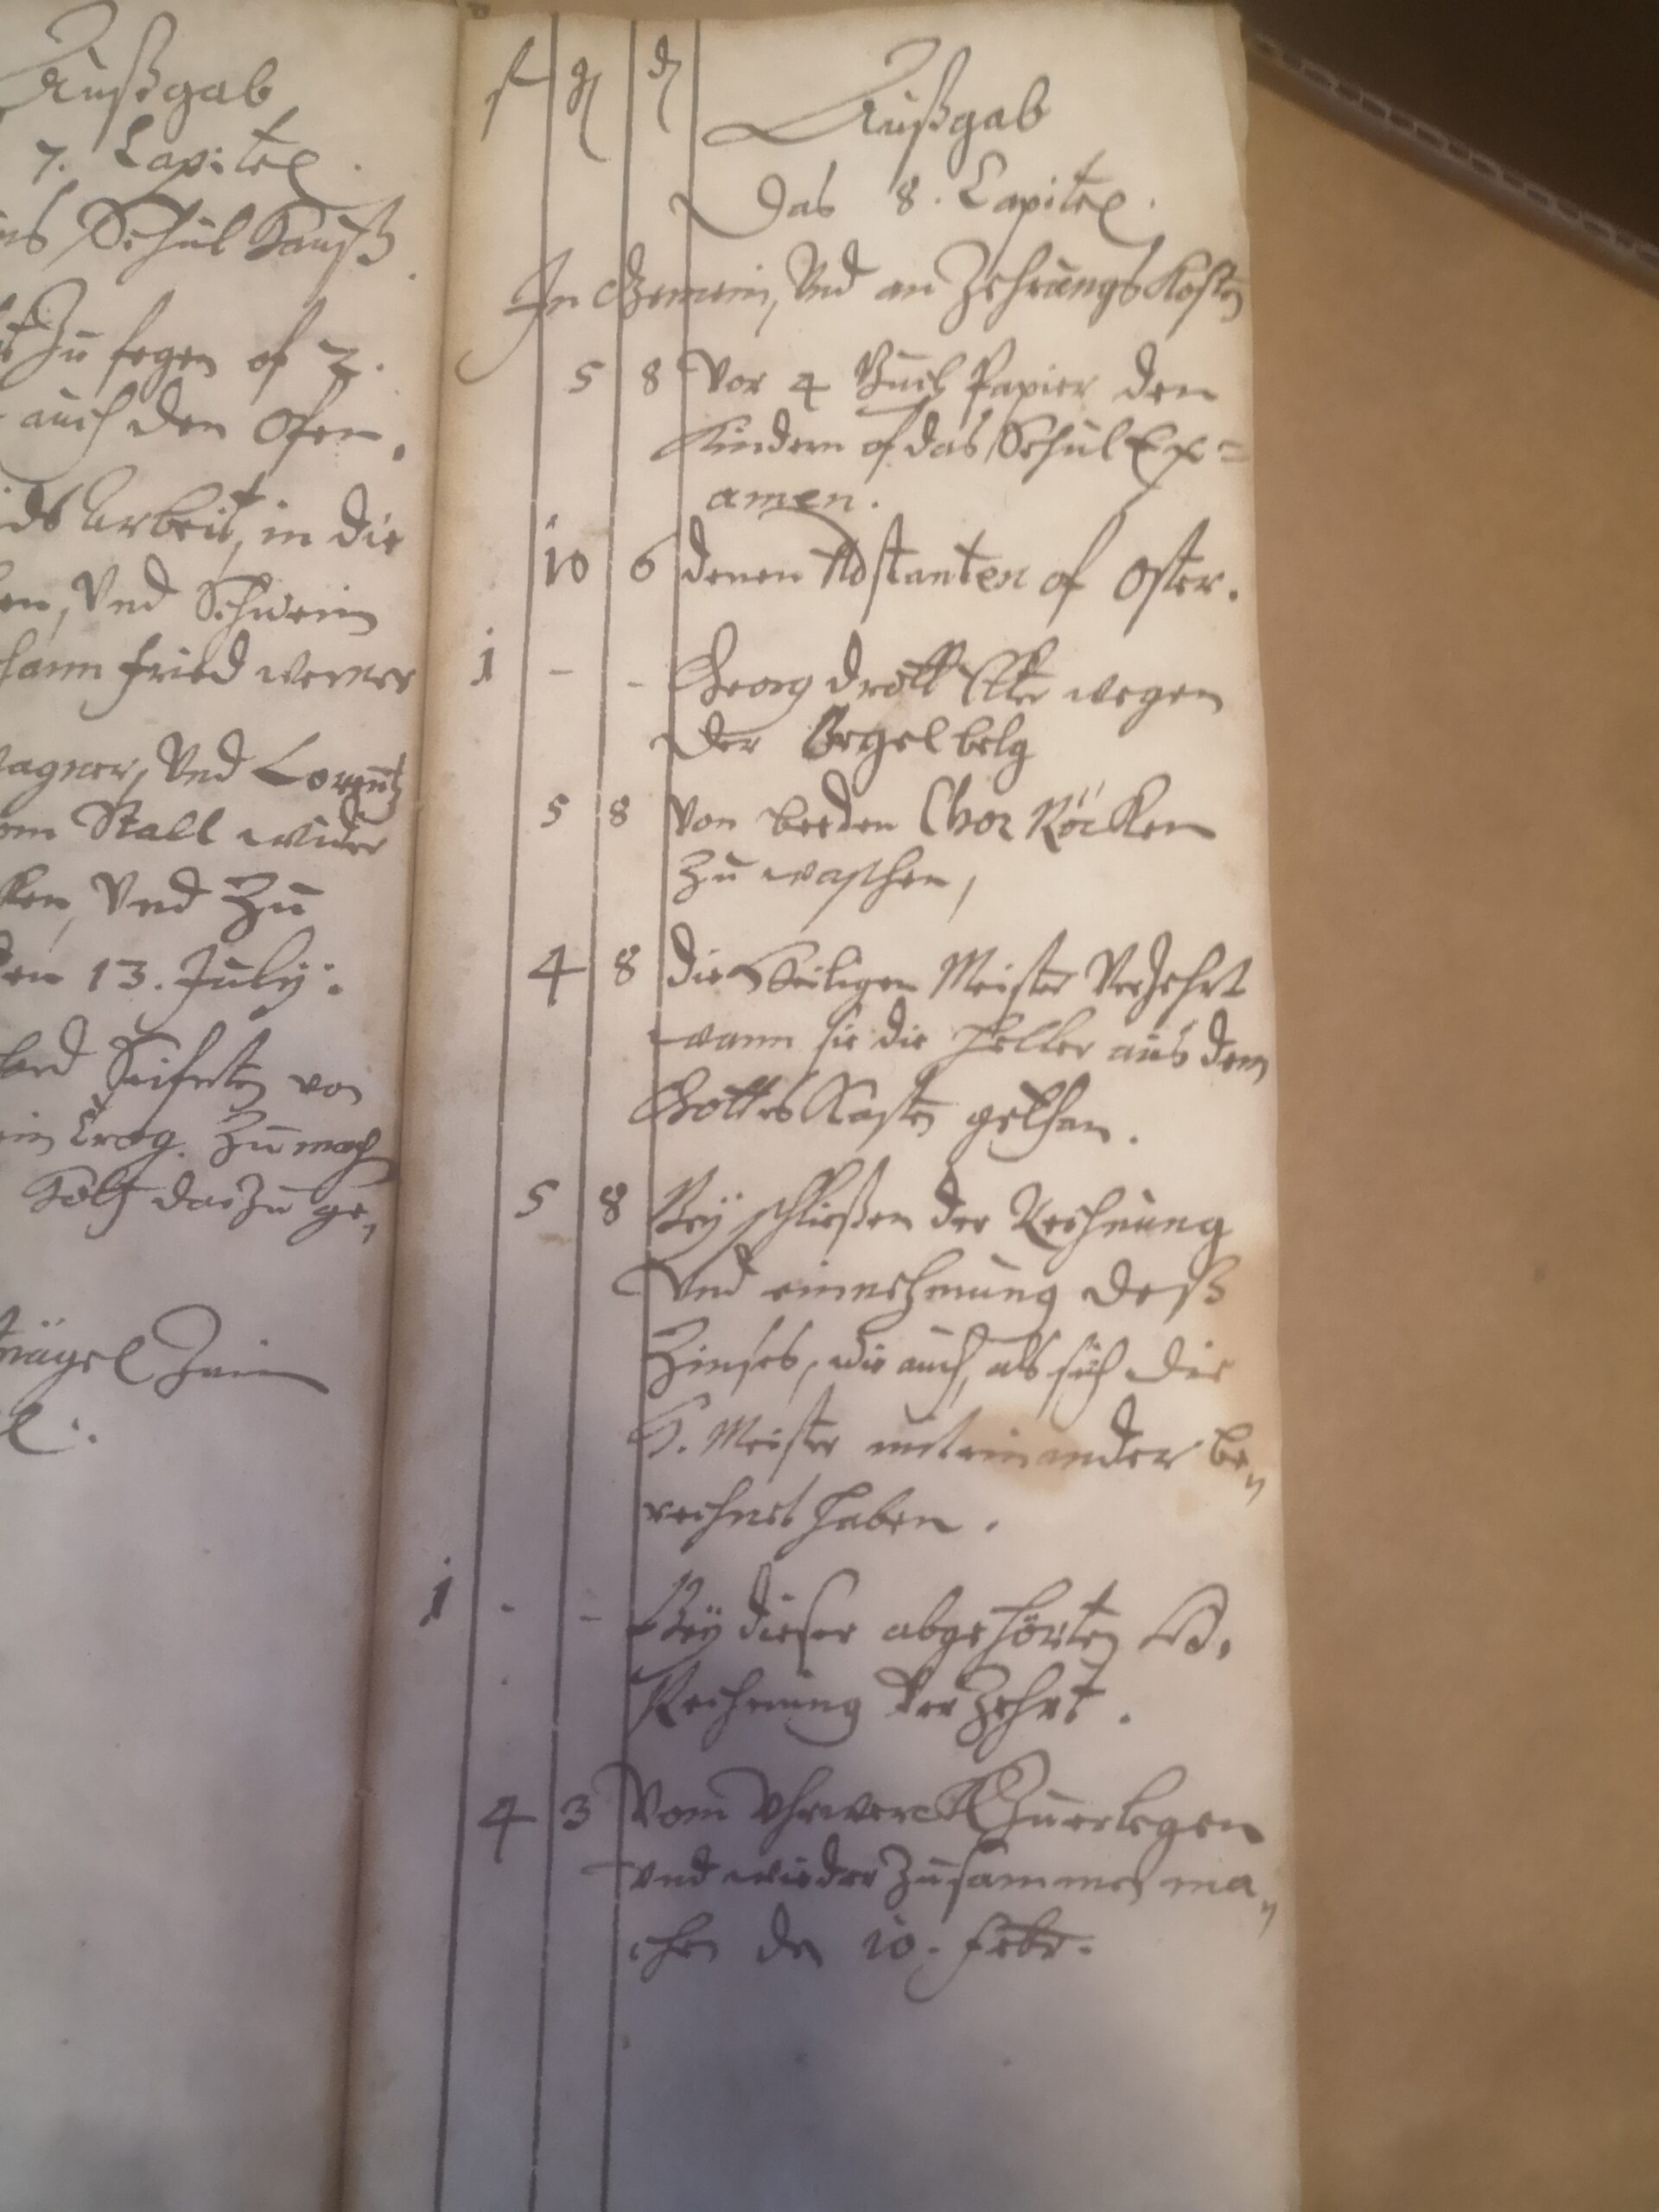 Außgab
7. Capitel.
Schul Hauß.
Zu fegen of 2.
auch den Ofen,
Arbeit, in die
Und Schwein
fried werners
Und Lorentz
Stall wider
Und Zu
13. July.
Seiferten von
Trog. Zu mach
Holtz darzu ge„
f g d
Außgab
Das 8. Capitel.
In Gemein, Und an Zehrungs Kosten
5 8 Vor 4 Buch Papier den
Kindern of das Schul Ex=
amen.
10 6 denen Adstanten of Oster.
1 - - Georg wegen
der Orgel belg
5 8 Von beeden Chor Röcken
Zu waschen,
4 8 die Heiligen Meister Verzehrt
wann sie die Heller aus dem
Gottes Kasten gethan.
5 8 Bey schließen der Rechnung
Und einnehmung deß
Zinses, wie auch, als sich die
H. Meister miteinander be„
rechnet haben.
1 - - Bey dieser abgehörten H.
Rechnung Verzehrt.
4 3 Vom Uhrwerck Zuerlegen
und wieder Zusammen ma„
chen den 10. Febr.